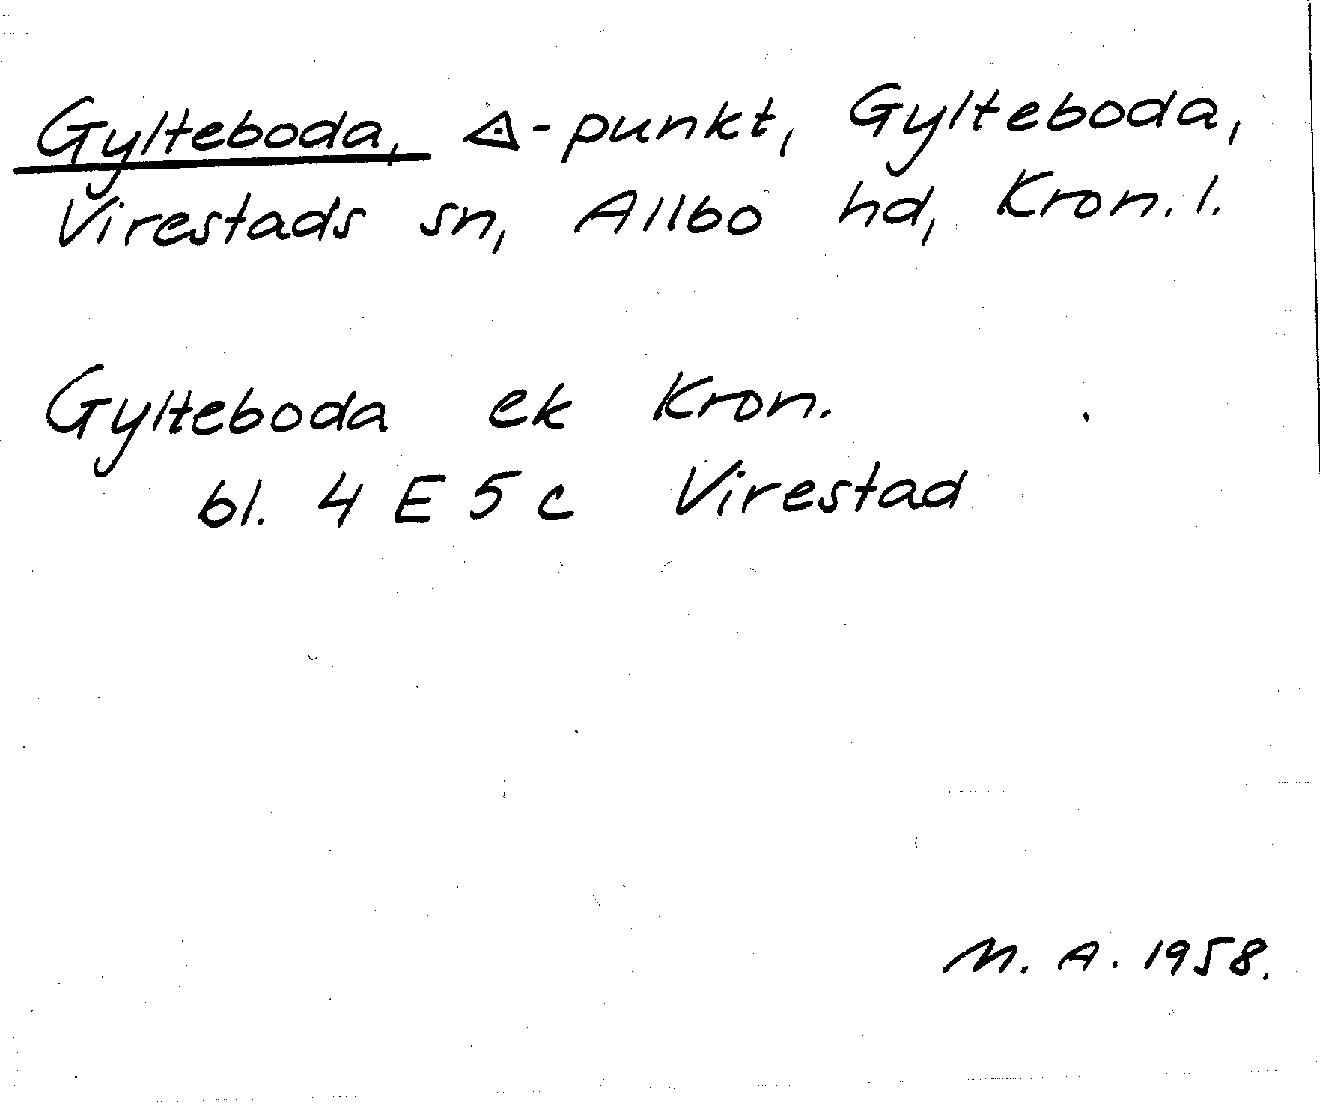 Gylteboda, △-punkt, Gylteboda,
Virestads sn, Allbo hd, Kron. l.
Gylteboda ek Kron.
bl. 4 E 5 c Virestad
M. A. 1958.